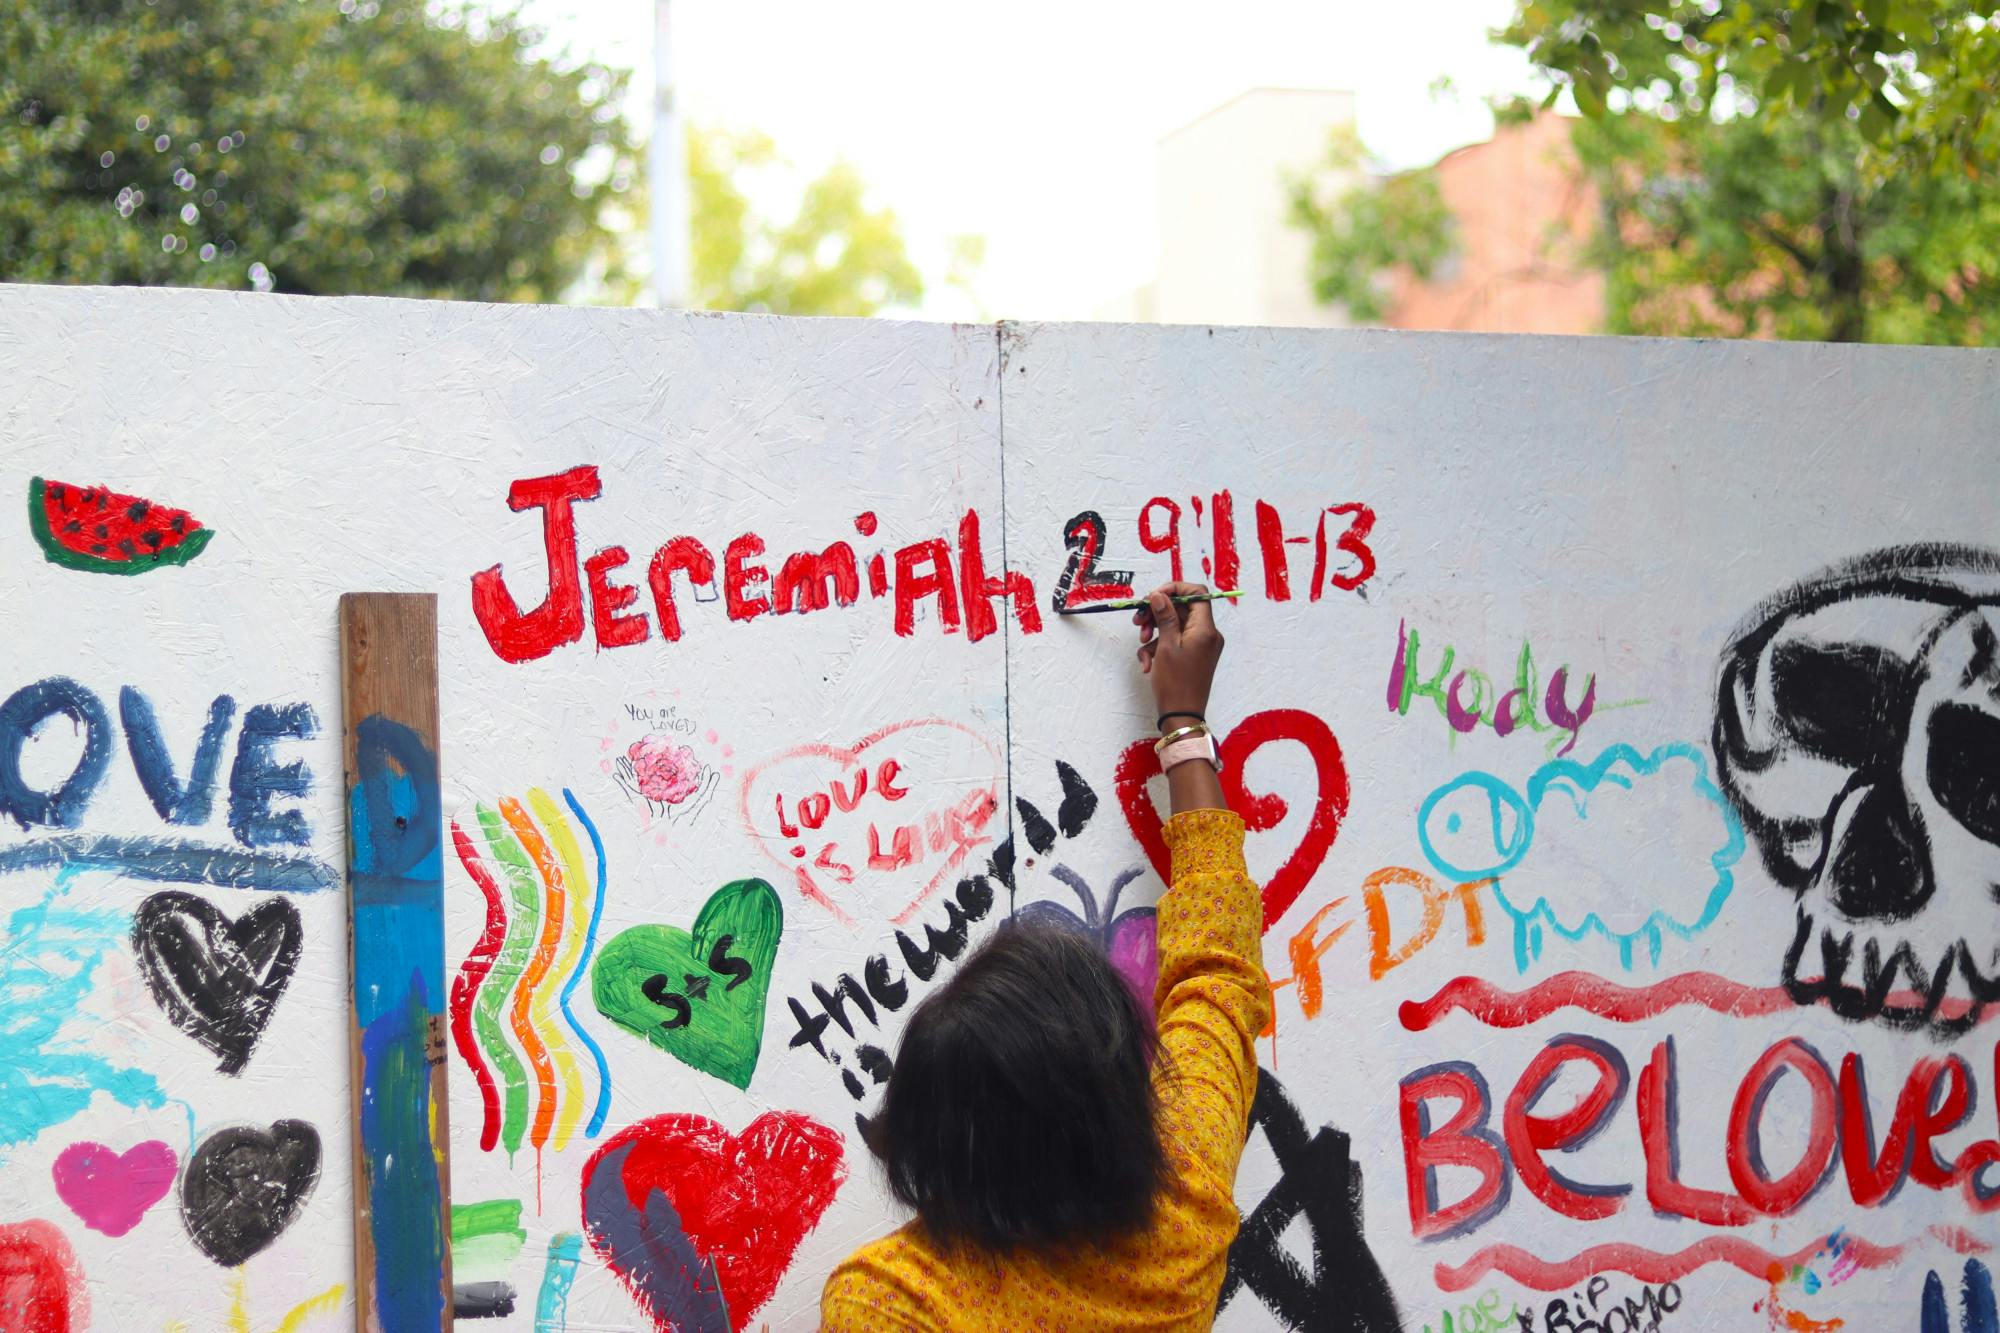 Jeremiah 29:11-13
Kody
OVE
YOU are
LOVED
Love
is Love
theword
is
S+S
FDT
BeLoved
RiP